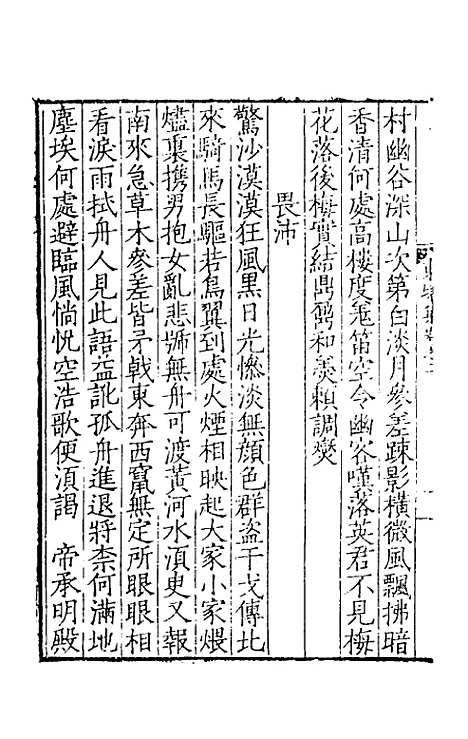 村幽谷深山次第白淡月參差疎影橫微風飄拂暗
香清何處高樓度羗笛空令幽客嘆落英君不見梅
花落後梅實結鼎鼐和羹賴調爕
畏沛
驚沙漠漠狂風黑日光慘淡無顔色群盗干戈傳北
來騎馬長驅若鳥翼到處火煙相映起大家小家煨
燼裏携男抱女亂悲號無舟可渡黃河水湏㬰又報
南來急草木參差皆矛戟東奔西竄無定所眼眼相
看淚雨拭舟人見此語益訛孤舟進退將柰何滿地
塵埃何處避臨風惝恍空浩歌便湏謁　帝承明殿